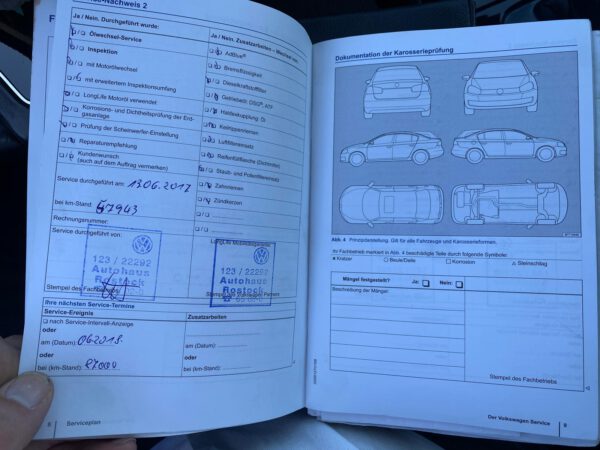 se-Nachweis 2
Ja / Nein. Durchgeführt wurde:
Ölwechsel-Service
Inspektion
mit Motorölwechsel
mit erweitertem Inspektionsumfang
LongLife Motoröl verwendet
Korrosions- und Dichtheitsprüfung der Erd-
gasanlage
Prüfung der Scheinwerfer-Einstellung
Reparaturempfehlung
Kundenwunsch
(auch auf dem Auftrag vermerken)
Service durchgeführt am: 13.06.2017
bei km-Stand: 67943
Rechnungsnummer:
Service durchgeführt von:
123 / 22292
Autohaus
Rostock
Stempel des Fachbetriebs
Ja / Nein. Zusatzarbeiten – Wechsel von:
AdBlue®
Bremsflüssigkeit
Dieselkraftstofffilter
Getriebeöl: DSG®, ATF
Haldexkupplung: Öl
Keilrippenriemen
Luftfiltereinsatz
Reifenfüllflasche (Dichtmittel)
Staub- und Pollenfiltereinsatz
Zahnriemen
Zündkerzen
LongLife Mobilitätsgarantie
123 / 22292
Autohaus
Rostock
Stempel des Volkswagen Partners
Ihre nächsten Service-Termine
Service-Ereignis
nach Service-Intervall-Anzeige
oder
am (Datum):
oder
bei (km-Stand):
Zusatzarbeiten
am (Datum):
oder
bei (km-Stand):
8 Serviceplan
Dokumentation der Karosserieprüfung
Abb. 4 Prinzipdarstellung. Gilt für alle Fahrzeuge und Karosserieformen.
Ihr Fachbetrieb markiert in Abb. 4 beschädigte Teile durch folgende Symbole:
Kratzer Beule/Delle Korrosion Steinschlag
Mängel festgestellt? Ja: Nein:
Beschreibung der Mängel:
Stempel des Fachbetriebs
Der Volkswagen Service 9